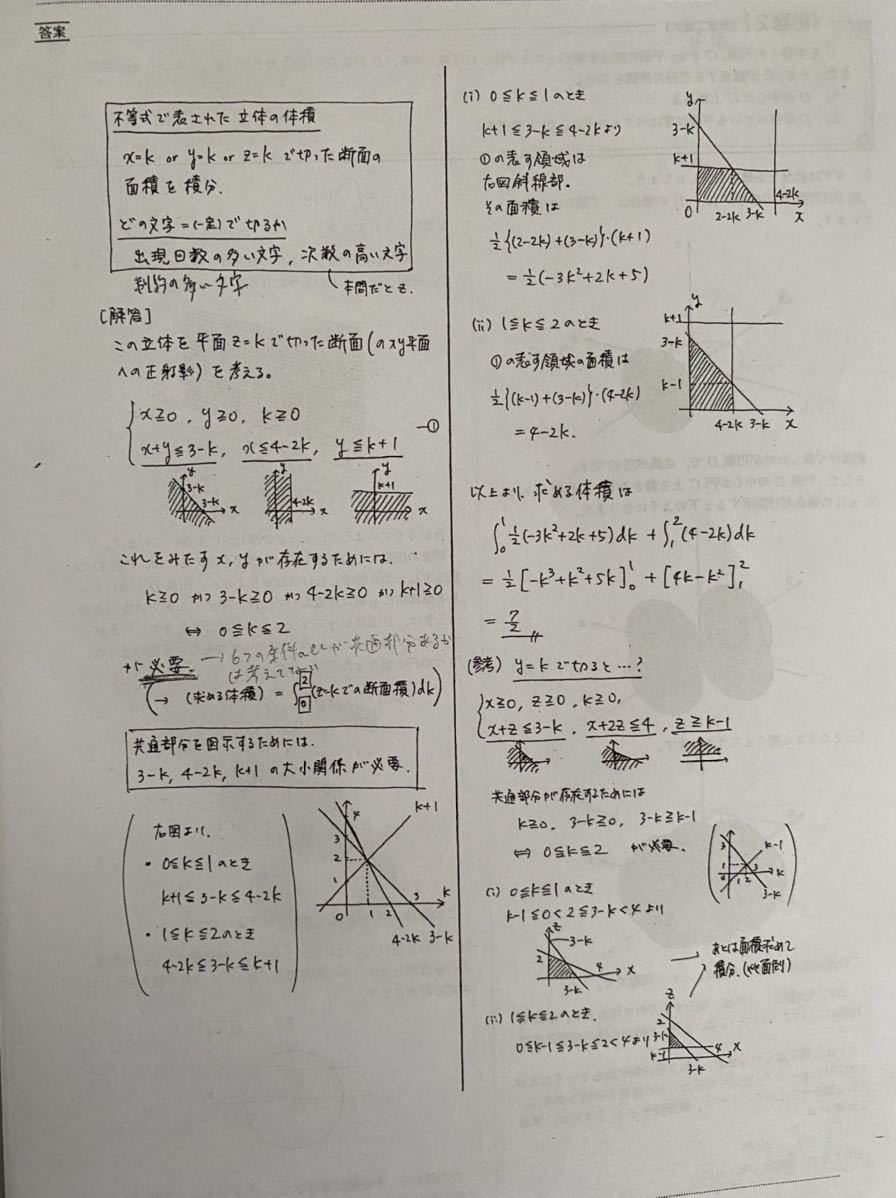 答案
不等式で表された立体の体積
x=k or y=k or z=k で切った断面の
面積を積分.
どの文字=(一定)で切るか
出現回数の多い文字, 次数の高い文字
制約の多い文字
本問だと z.
[解答]
この立体を平面 z=k で切った断面(の xy平面
への正射影)を考える。
x≧0, y≧0, k≧0
x+y≦3-k, x≦4-2k, y≦k+1 —①
y 3-k 3-k x
y 4-2k x
y k+1 x
これをみたす x, y が存在するためには.
k≧0 かつ 3-k≧0 かつ 4-2k≧0 かつ k+1≧0
⇔ 0≦k≦2
が必要.
→6つの条件 共通部分あるか
は考えてない
(→ (求める体積) = ∫₀² (z=k での断面積)dk)
共通部分を図示するためには.
3-k, 4-2k, k+1 の大小関係が必要.
右図より.
・ 0≦k≦1 のとき
k+1≦3-k≦4-2k
・ 1≦k≦2 のとき
4-2k≦3-k≦k+1
4 3 2 1 0 1 2 3 k
k+1
4-2k 3-k
(i) 0≦k≦1 のとき
k+1≦3-k≦4-2k より
①の表す領域は
右図斜線部.
その面積は
½{(2-2k)+(3-k)}·(k+1)
= ½(-3k²+2k+5)
y
3-k
k+1
0 2-2k 3-k 4-2k x
(ii) 1≦k≦2 のとき
①の表す領域の面積は
½{(k-1)+(3-k)}·(4-2k)
= 4-2k.
y
k+1
3-k
k-1
4-2k 3-k x
以上より. 求める体積は
∫₀¹ ½(-3k²+2k+5)dk + ∫₁² (4-2k)dk
= ½[-k³+k²+5k]₀¹ + [4k-k²]₁²
= 7/2
(参考) y=k で切ると…?
x≧0, z≧0, k≧0,
x+z≦3-k, x+2z≦4, z≧k-1
共通部分が存在するためには
k≧0, 3-k≧0, 3-k≧k-1
⇔ 0≦k≦2 が必要.
3 1 0 1 2 3 k
k-1
3-k
(i) 0≦k≦1 のとき
k-1≦0<2≦3-k<4 より
z 3-k
2
3-k 4 x
→ あとは面積求めて
積分. (やや面倒)
(ii) 1≦k≦2 のとき.
0≦k-1≦3-k≦2<4 より
z
2
3-k
k-1
3-k 4 x